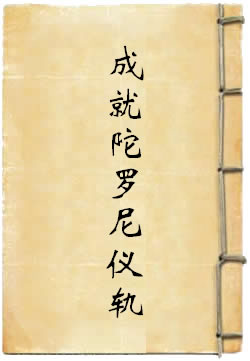 成就陀罗尼仪轨